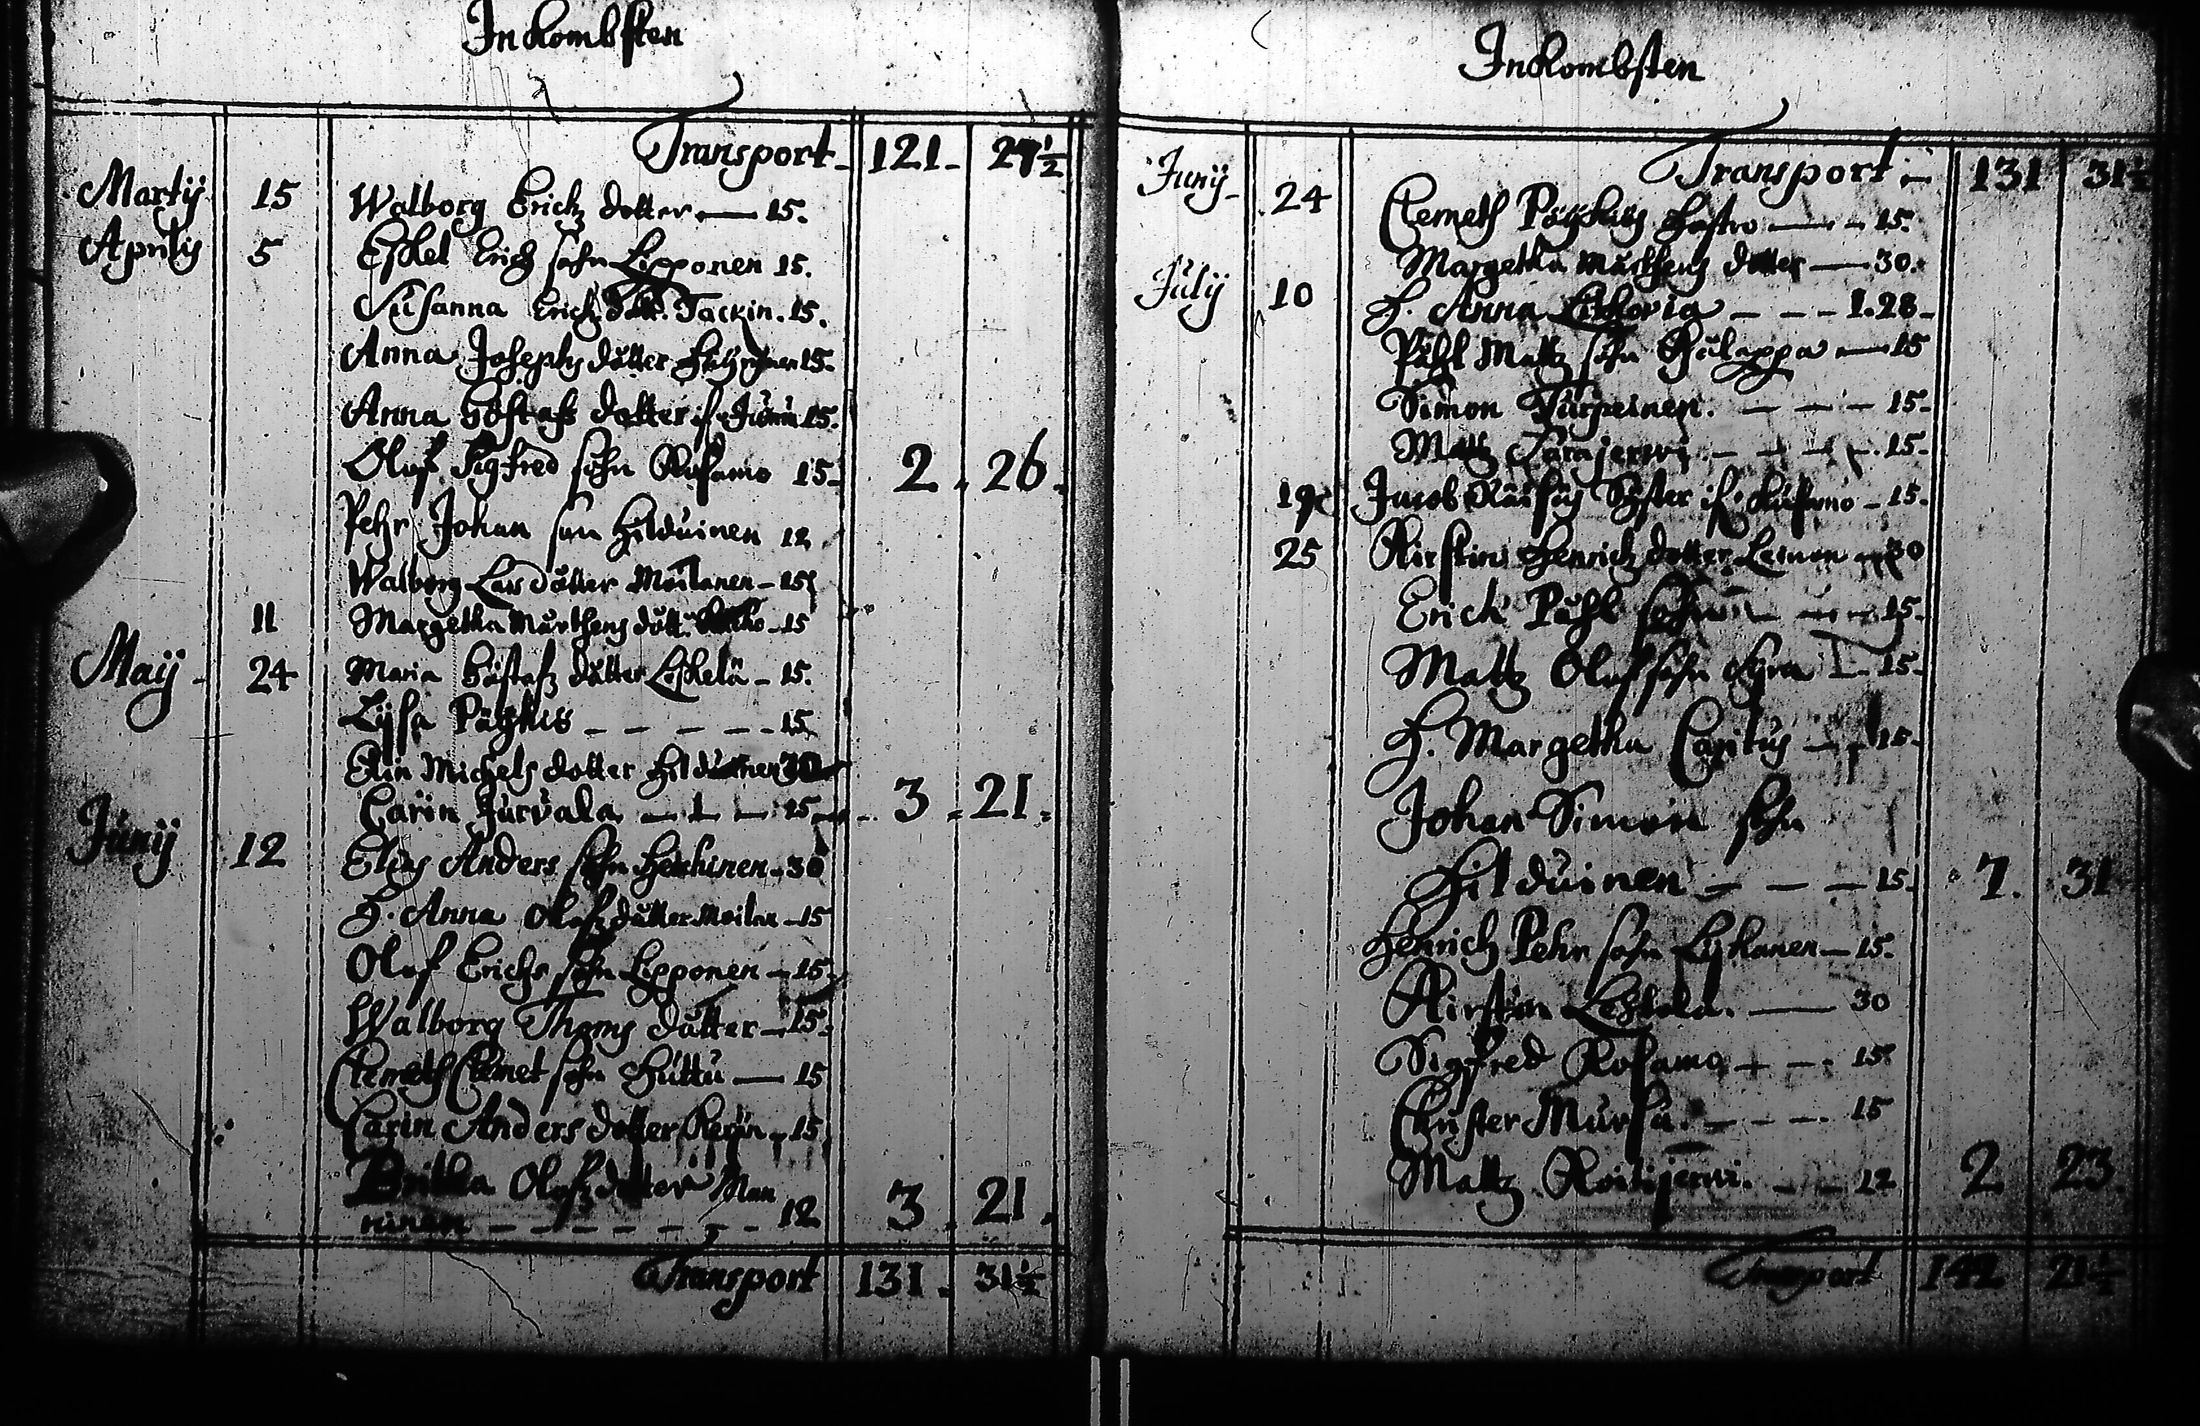 Inkombsten
Transport 121. 27½
Martij 15 Walborg Erichz dotter — 15.
Aprilis 5 Eskel Erichsohn Lipponen 15.
Susanna Erichz dott. Tackin. 15.
Anna Josephs dåtter 15.
Anna Göstafz dotter if. 15.
Oluf Sigfred sohn Rosamo 15. 2. 26.
Pehr Johan son Hilduinen 12
Walborg Lars dåtter Moilanen — 15
11 Margetha Mårthens dott. 15
Maij 24 Maria Göstafz dåtter Leskelä — 15.
Lijsa Påhlhus — — — — 15
Elin Michels dotter Hilduinen 30
Carin Jurvala — — — 15 3. 21.
Junij 12 Elias Anders sohn Heikinen — 30
H. Anna Olofz dåtter Moilan — 15
Olof Erichs sohn Lipponen — 15
Walborg Thoms dåtter — 15.
Clemeth Clemet sohn Huttu — 15
Carin Anders dotter 15
Britha Olofz dotter Man
ninen — — — — — — 12 3. 21.
Transport 131. 31½
Inkombsten
Transport 131 31½
Junij 24 Clemeth hustro — 15.
Margetha Mårthens dotter — 30.
Julij 10 H. Anna — — — 1. 28
Påhl Mattz sohn Kulappa — 15
Simon Turpeinen. — — — 15.
Mattz Sarajerwi — — — 15.
19 Jacob Syster if. 15.
25 Kirstin Henrichz dotter Leinon 30
Erich Påhl sohn — — — 15.
Mattz Oluf sohn — 15.
H. Margetha Caritus — — 15.
Johan Simon sohn
Hilduinen — — — 15. 7. 31
Henrich Pehr sohn Lykanen — 15.
Kirstin Leskela. — 30
Sigfred Rosamo — — 15.
Christer Mursu. — — — 15
Mattz Roitijerwi. — — 12 2 23
Transport 142 21½